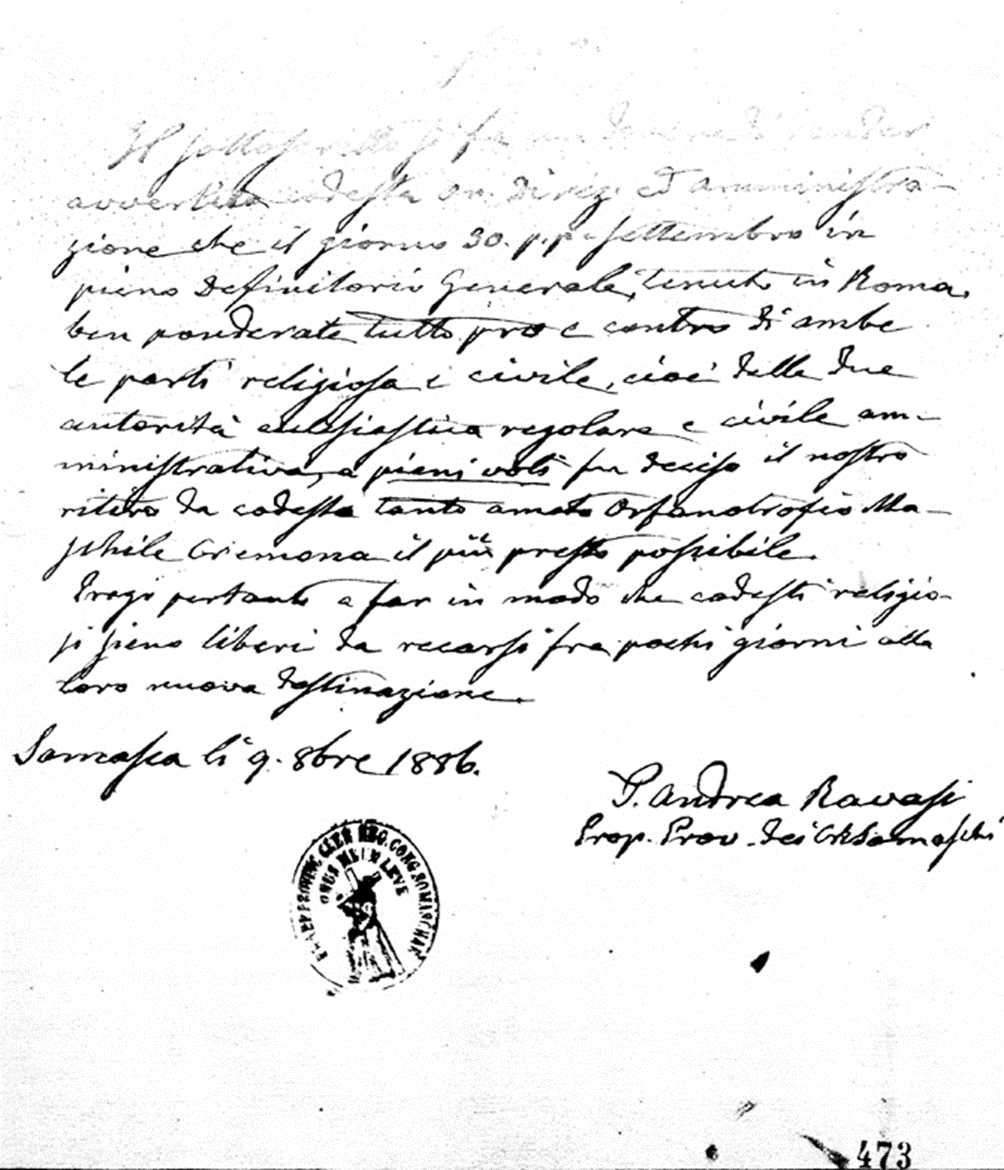 Il sottoscritto si fa un dovere di render
avvertita codesta On. Direz. ed amministra-
zione che il giorno 30. p.p. settembre in
pieno Definitorio Generale, tenuto in Roma,
ben ponderate tutto pro e contro di ambe
le parti religiosa e civile, cioè delle due
autorità ecclesiastica regolare e civile am-
ministrativa, a pieni voti fu deciso il nostro
ritiro da codesto tanto amato Orfanotrofio Ma-
schile Cremona il più presto possibile.
Pregi pertanto a far in modo che codesti religio-
si sieno liberi da recarsi fra pochi giorni alla
loro nuova destinazione.
Somasca li 9. 8bre 1886.
P. Andrea Ravasi
Prep. Prov. dei CRSomaschi
PROVINC CLER REG. CONG. SOMASCHAE
ONUS MEUM LEVE
473